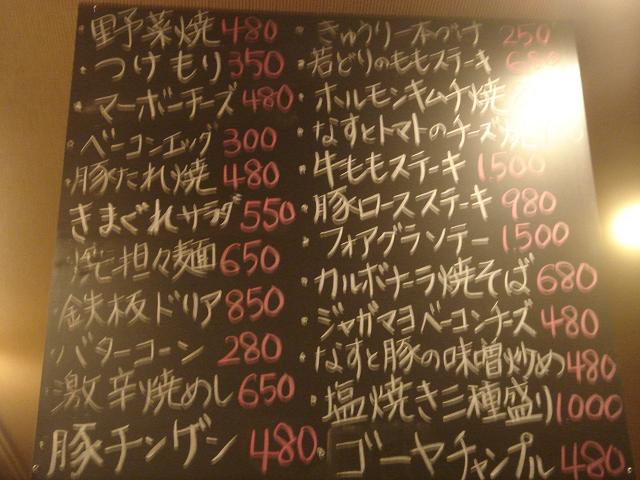 ・野菜焼 480
・つけもり 350
・マーボーチーズ 480
・ベーコンエッグ 300
・豚たれ焼 480
・きまぐれサラダ 550
・焼担々麺 650
・鉄板ドリア 850
・バターコーン 280
・激辛焼めし 650
・豚チンゲン 480
・きゅうり一本づけ 250
・若どりのももステーキ
・ホルモンキムチ焼
・なすとトマトのチーズ焼
・牛ももステーキ 1500
・豚ロースステーキ 980
・フォアグラソテー 1500
・カルボナーラ焼そば 680
・ジャガマヨベーコンチーズ 480
・なすと豚の味噌炒め 480
・塩焼き三種盛り 1000
・ゴーヤチャンプル 480